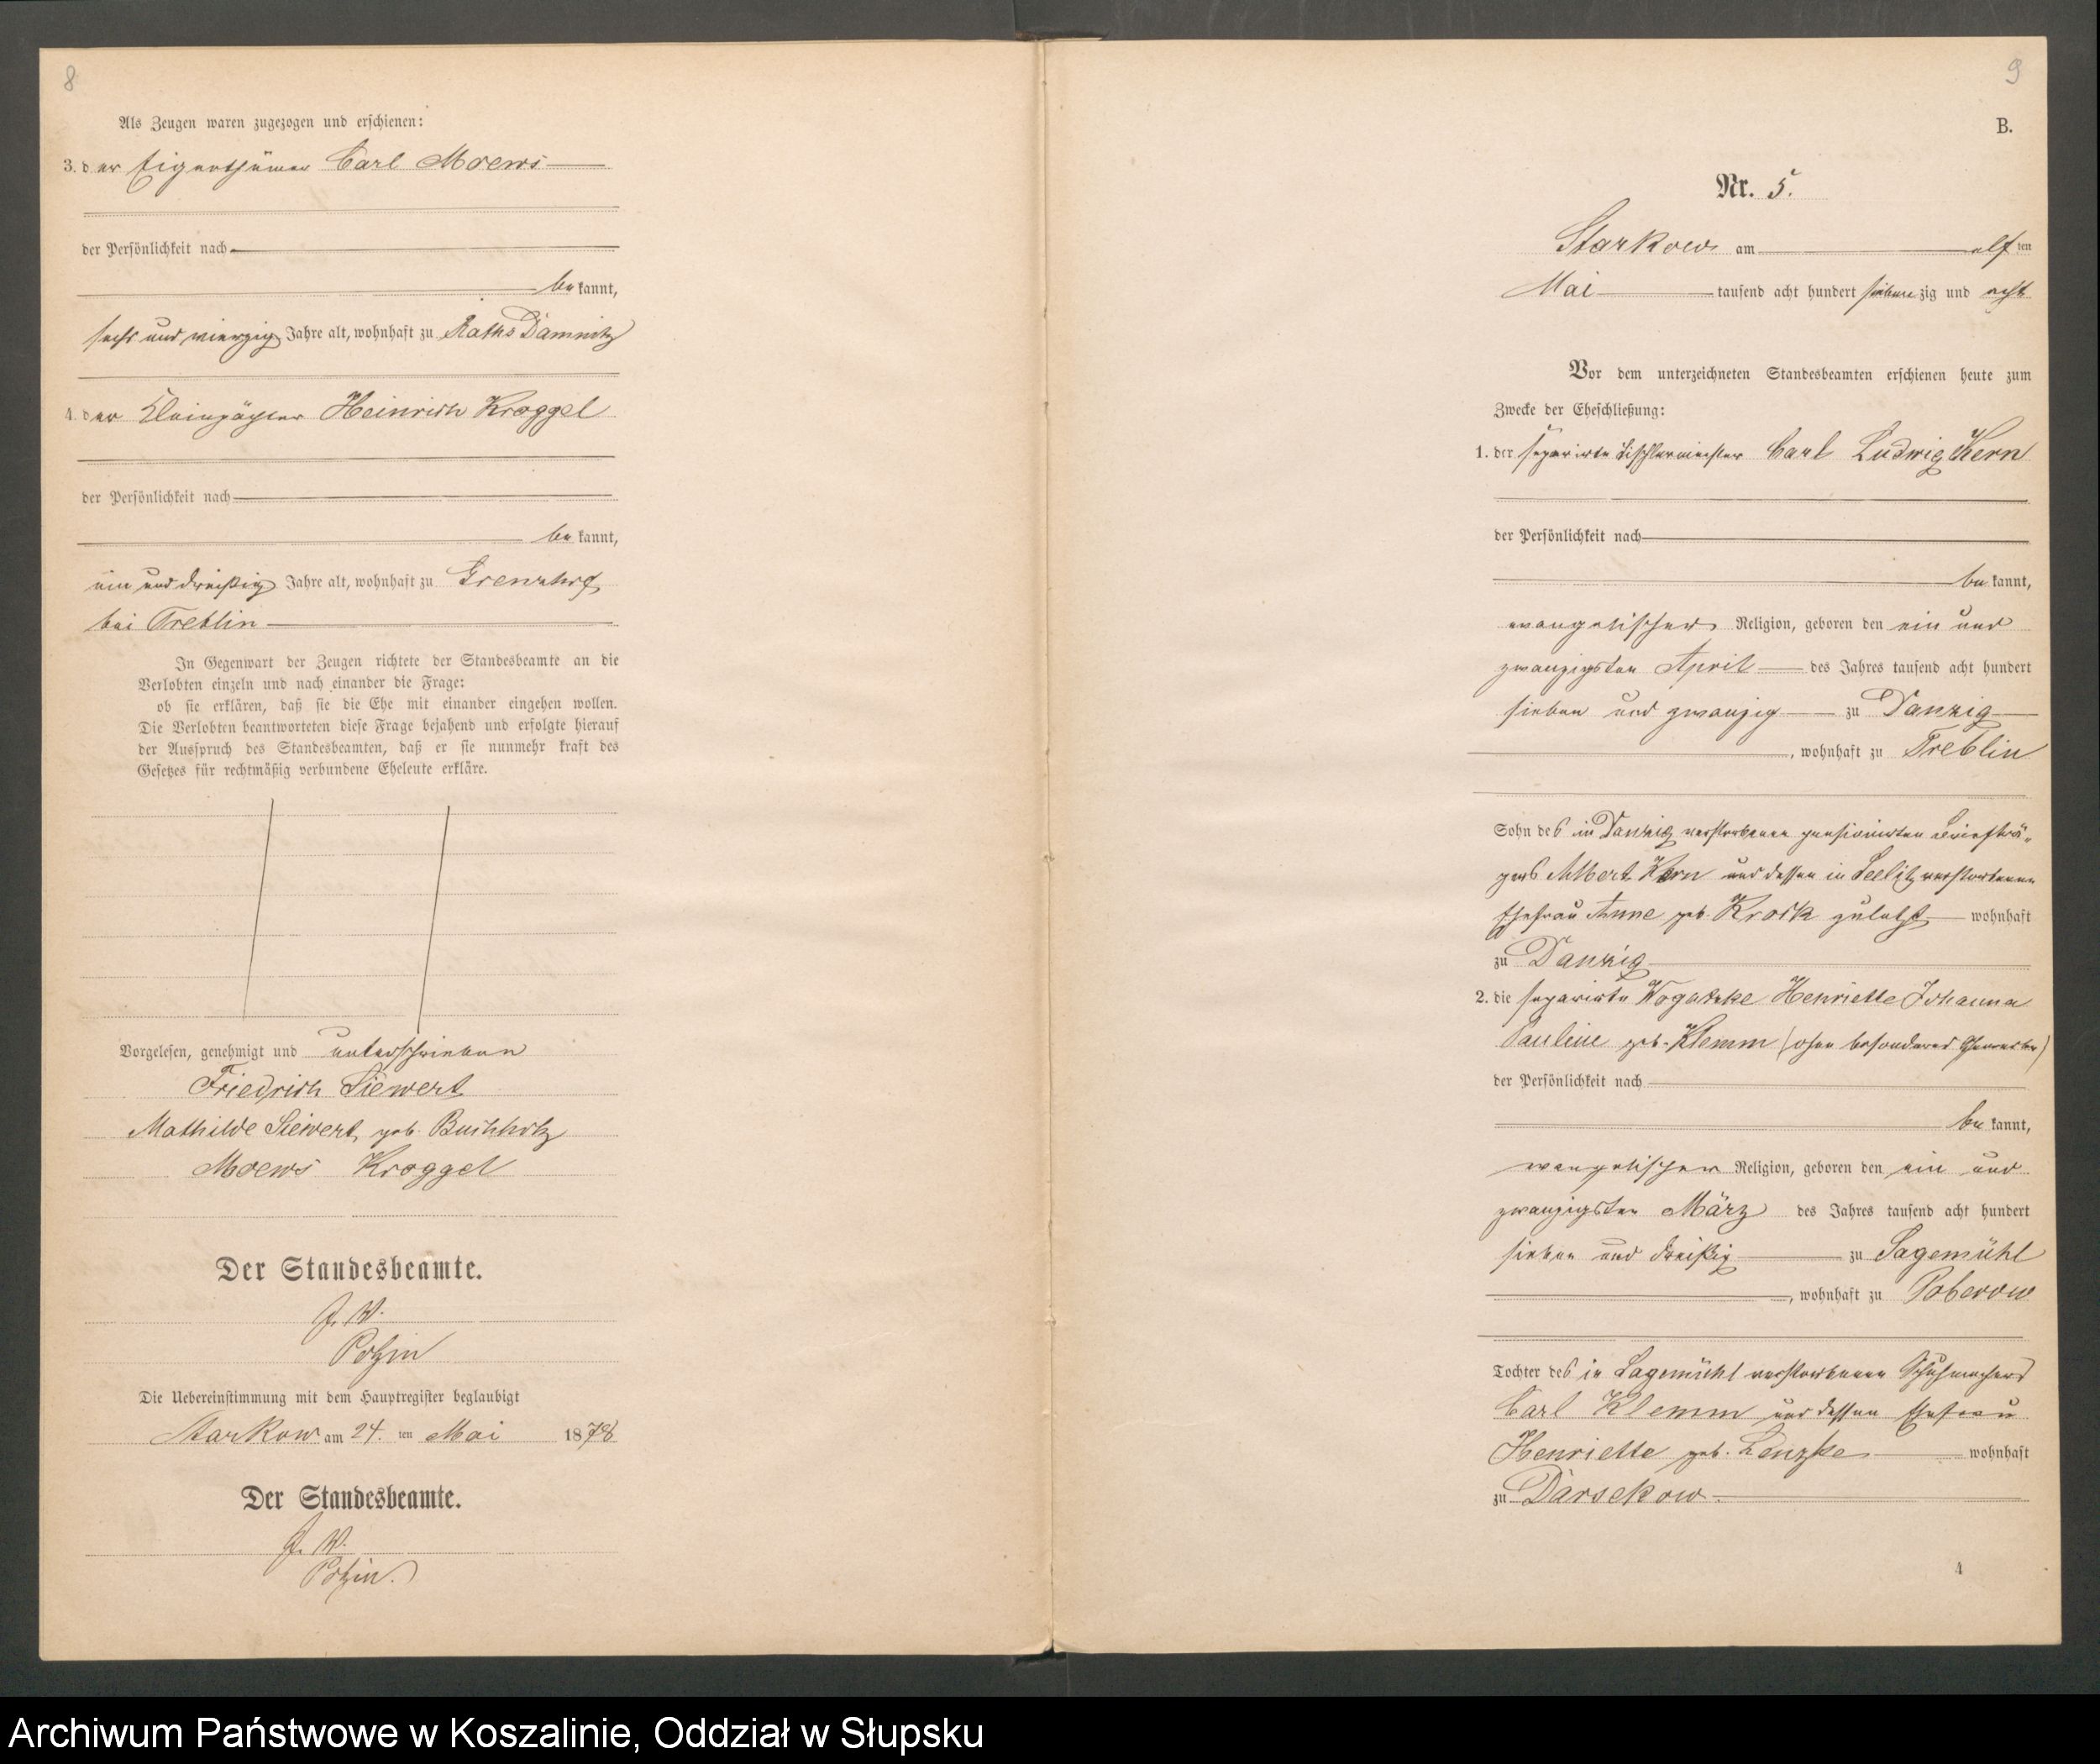 8
Als Zeugen waren zugezogen und erschienen:
3. der Eigenthümer Carl Moews
der Persönlichkeit nach
bekannt,
sechs und vierzig Jahre alt, wohnhaft zu Raths Damnitz
4. der Heinrich Kroggel
der Persönlichkeit nach
bekannt,
ein und dreißig Jahre alt, wohnhaft zu
bei Treblin
In Gegenwart der Zeugen richtete der Standesbeamte an die
Verlobten einzeln und nach einander die Frage:
ob sie erklären, daß sie die Ehe mit einander eingehen wollen.
Die Verlobten beantworteten diese Frage bejahend und erfolgte hierauf
der Ausspruch des Standesbeamten, daß er sie nunmehr kraft des
Gesetzes für rechtmäßig verbundene Eheleute erkläre.
Vorgelesen, genehmigt und unterschrieben
Friedrich Siewert
Mathilde Siewert, geb. Buchholz
Moews Kroggel
Der Standesbeamte.
J. V.
Die Uebereinstimmung mit dem Hauptregister beglaubigt
Starkow am 24. ten Mai 1878
Der Standesbeamte.
J. V.
9
B.
Nr. 5.
Starkow am elften
Mai tausend acht hundert siebenzig und acht
Vor dem unterzeichneten Standesbeamten erschienen heute zum
Zwecke der Eheschließung:
1. der separirte Tischlermeister Carl Ludwig Kern
der Persönlichkeit nach
bekannt,
evangelischer Religion, geboren den ein und
zwanzigsten April des Jahres tausend acht hundert
sieben und zwanzig zu Danzig
, wohnhaft zu Treblin
Sohn des in Danzig verstorbenen pensionirten Briefträ-
gers Albert Kern und dessen in verstorbenen
Ehefrau Anne geb. zuletzt wohnhaft
zu Danzig
2. die separirte Henriette Johanna
Pauline geb. Klemm (ohne besonderes Gewerbe)
der Persönlichkeit nach
bekannt,
evangelischer Religion, geboren den ein und
zwanzigsten März des Jahres tausend acht hundert
sieben und dreißig zu Sagemühl
, wohnhaft zu Poberow
Tochter des in Sagemühl verstorbenen Schuhmachers
Carl Klemm und dessen Ehefrau
Henriette geb. Lenzke wohnhaft
zu Darsekow.
4
Archiwum Państwowe w Koszalinie, Oddział w Słupsku